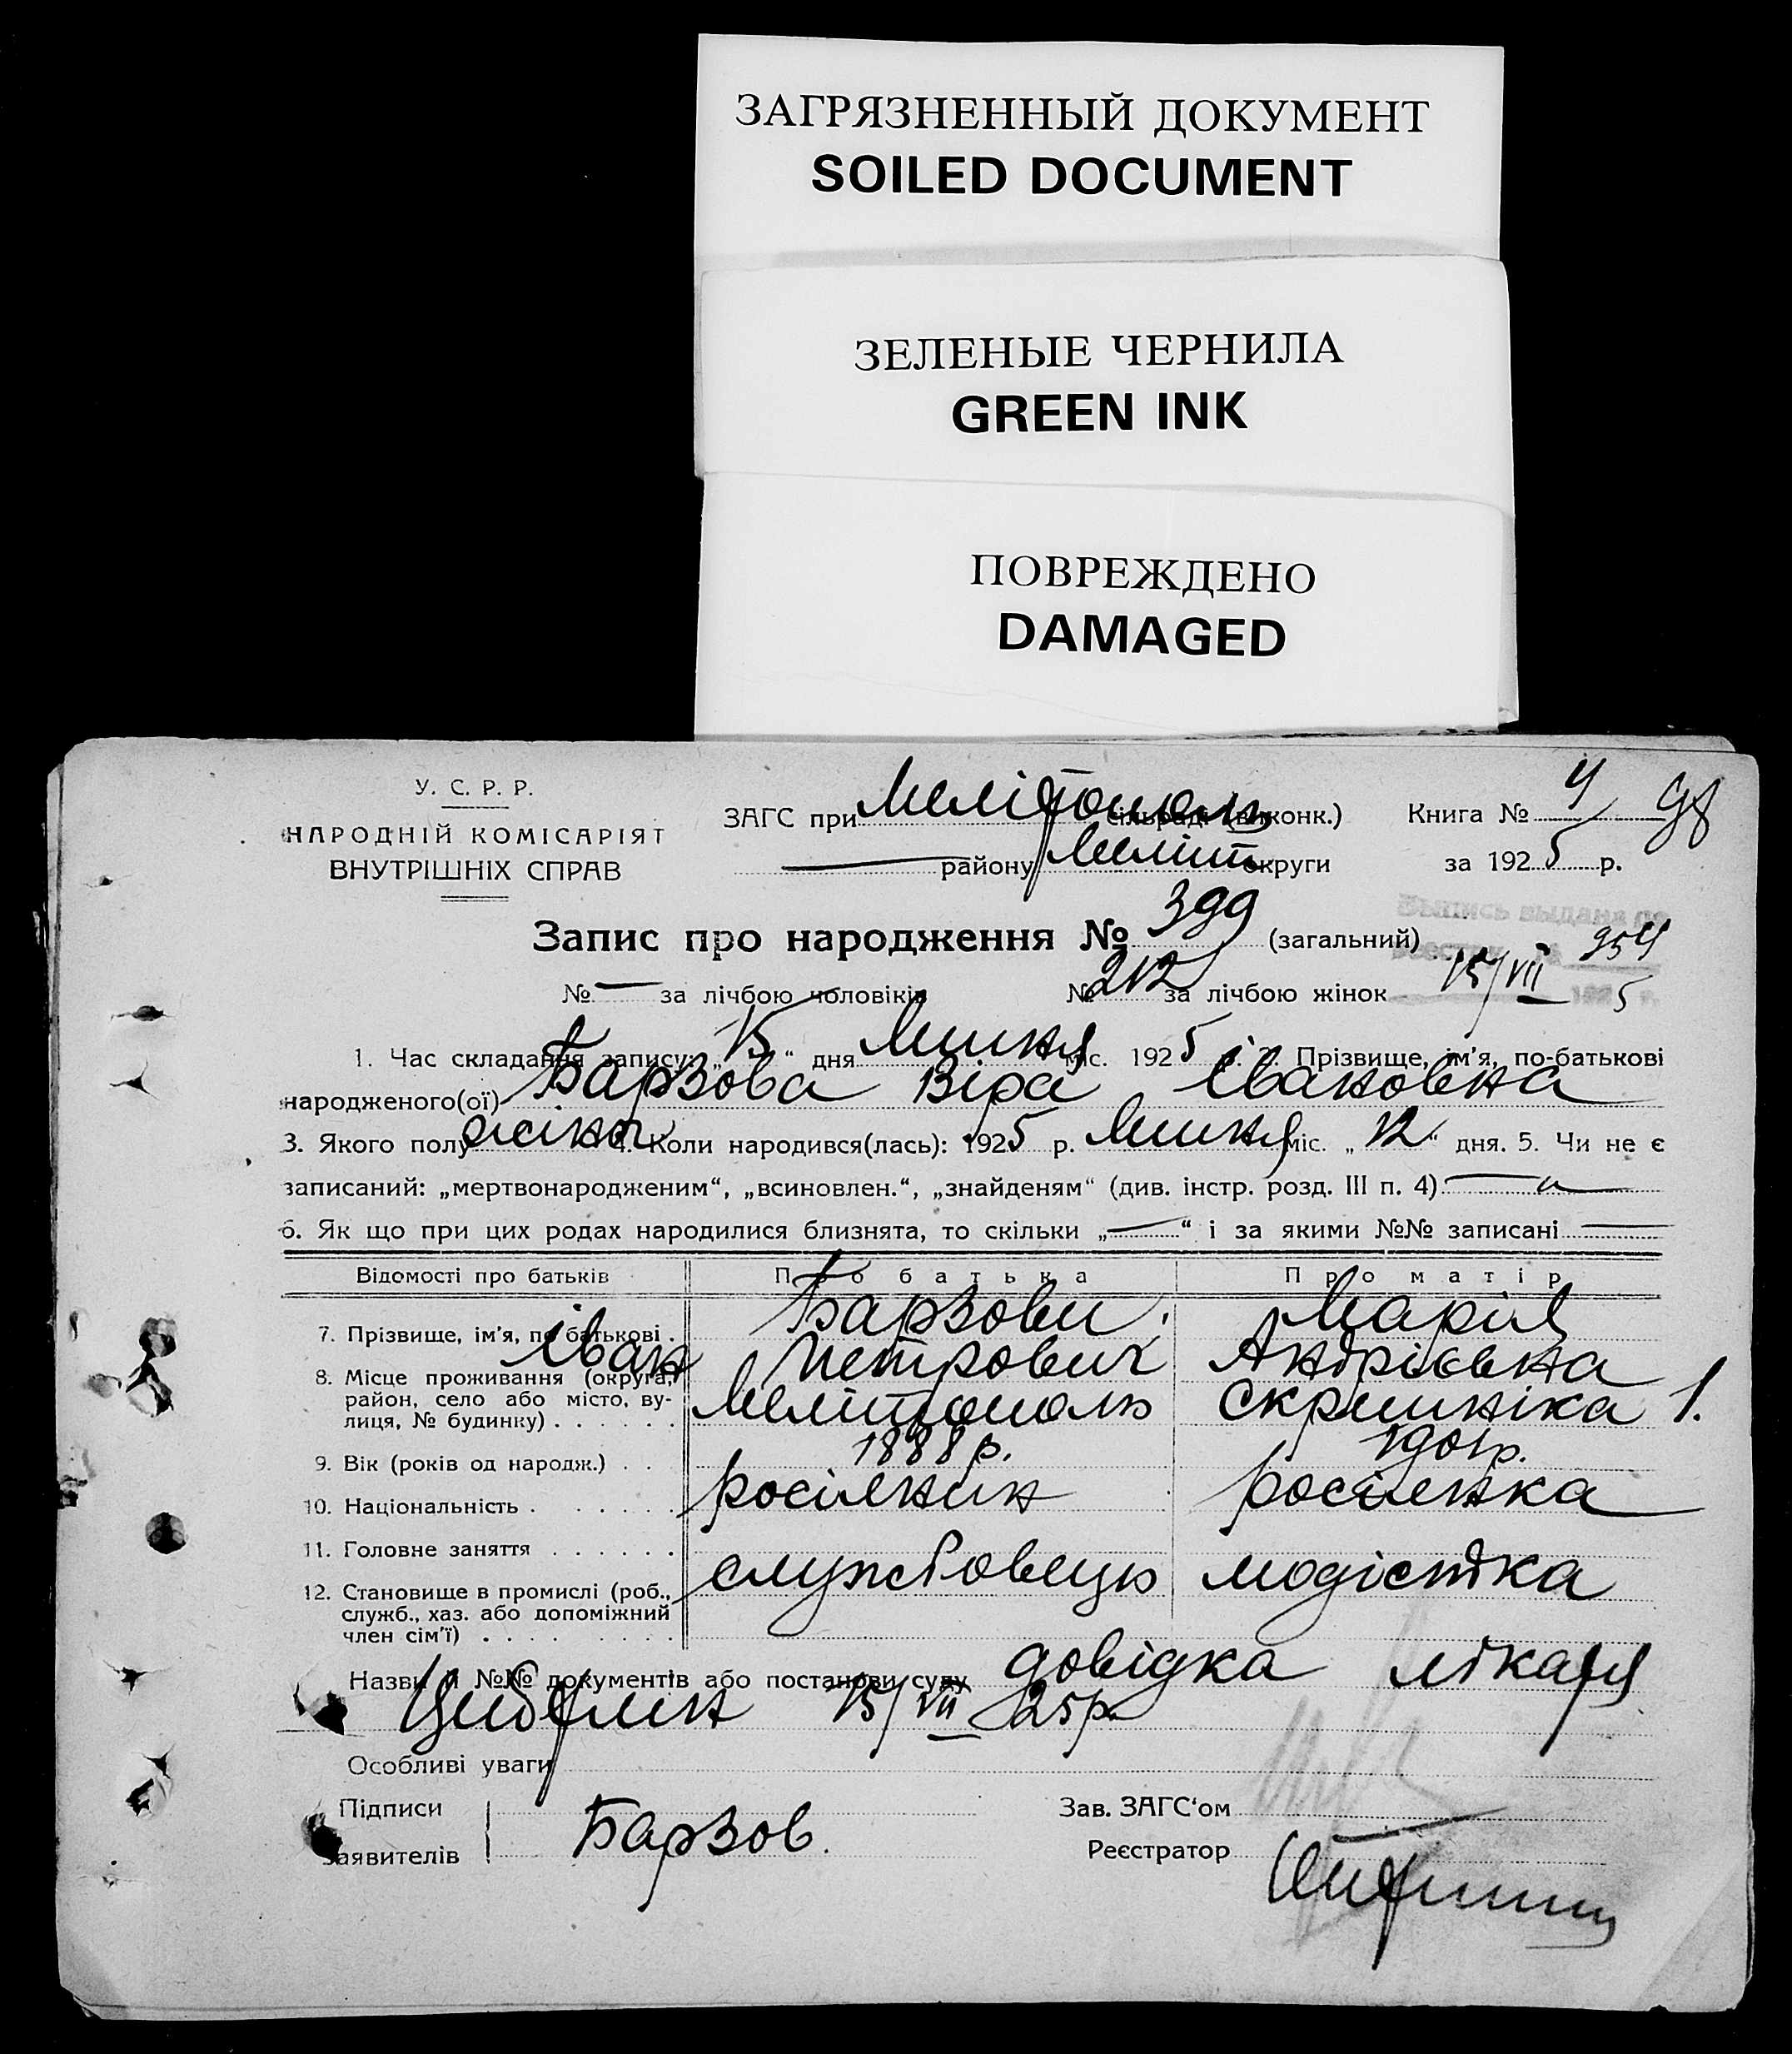 ЗАГРЯЗНЕННЫЙ ДОКУМЕНТ
SOILED DOCUMENT
ЗЕЛЕНЫЕ ЧЕРНИЛА
GREEN INK
ПОВРЕЖДЕНО
DAMAGED
У. С. Р. Р.
НАРОДНІЙ КОМІСАРІЯТ
ВНУТРІШНІХ СПРАВ
ЗАГС при Мелітополь сільраді (виконк.)
району Меліт округи
Книга № 4 98
за 1925 р.
Запис про народження № 399 (загальний)
Выпись выдана по
954
№ — за лічбою чоловіків № 212 за лічбою жінок 15/VII 1925 г.
1. Час складання запису: „15“ дня Липня міс. 1925 р. 2. Прізвище, ім’я, по-батькові
народженого(ої) Барзова Віра Івановна
3. Якого полу жіноч 4. Коли народився(лась): 1925 р. Липня міс. „12“ дня. 5. Чи не є
записаний: „мертвонародженим“, „всиновлен.“, „знайденям“ (див. інстр. розд. III п. 4) —
6. Як що при цих родах народилися близнята, то скільки „—“ і за якими №№ записані —
Відомості про батьків Про батька Про матір
7. Прізвище, ім’я, по батькові . Барзови Марія
Іван Петрович Андрієвна
8. Місце проживання (округа,
район, село або місто, ву-
лиця, № будинку) . . . . . . Мелітополь Скрипніка 1.
9. Вік (років од народж.) . . 1888 р. 1901р.
10. Національність . . . . . . росіянин росіянка
11. Головне заняття . . . . . .
12. Становище в промислі (роб.,
служб., хаз. або допоміжний
член сім’ї) . . . . . . . . службовець модістка
Назви й №№ документів або постанови суду довідка лікаря
15/VII 25р.
Особливі уваги
Підписи
заявителів Барзов.
Зав. ЗАГС‘ом
Реєстратор